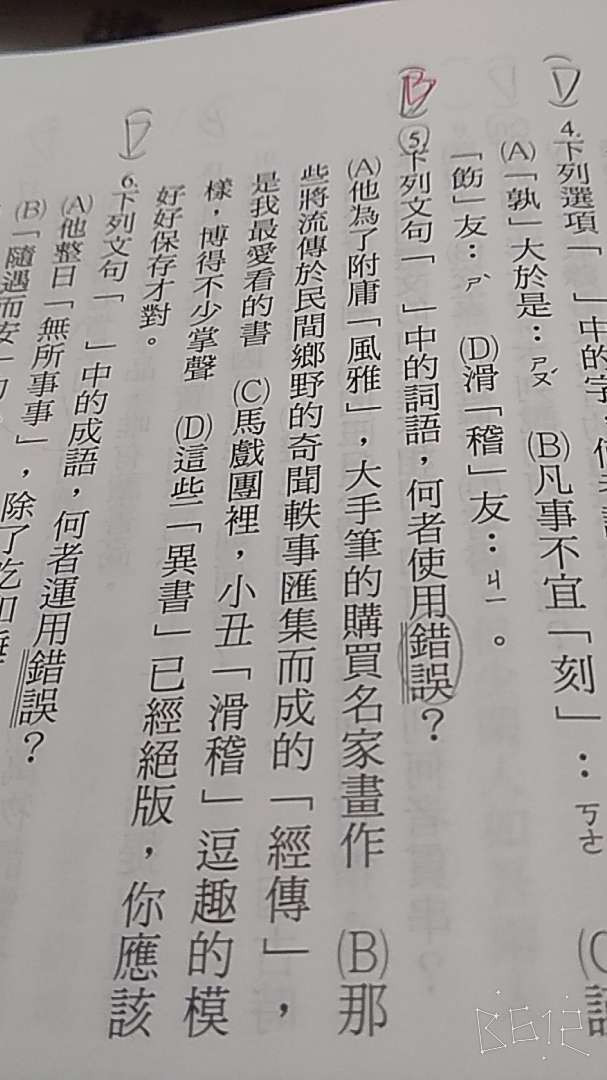 (D)
4.下列選項「　」中的字，
(A)「孰」大於是：ㄕㄨˊ　(B)凡事不宜「刻」：ㄎㄜ
「飭」友：ㄕˋ　(D)滑「稽」友：ㄐㄧ。
(B)
5.下列文句「　」中的詞語，何者使用錯誤？
(A)他為了附庸「風雅」，大手筆的購買名家畫作　(B)那
些將流傳於民間鄉野的奇聞軼事匯集而成的「經傳」，
是我最愛看的書　(C)馬戲團裡，小丑「滑稽」逗趣的模
樣，博得不少掌聲　(D)這些「異書」已經絕版，你應該
好好保存才對。
6.下列文句「　」中的成語，何者運用錯誤？
(A)他整日「無所事事」，除了吃
(B)「隨遇而安」
B612